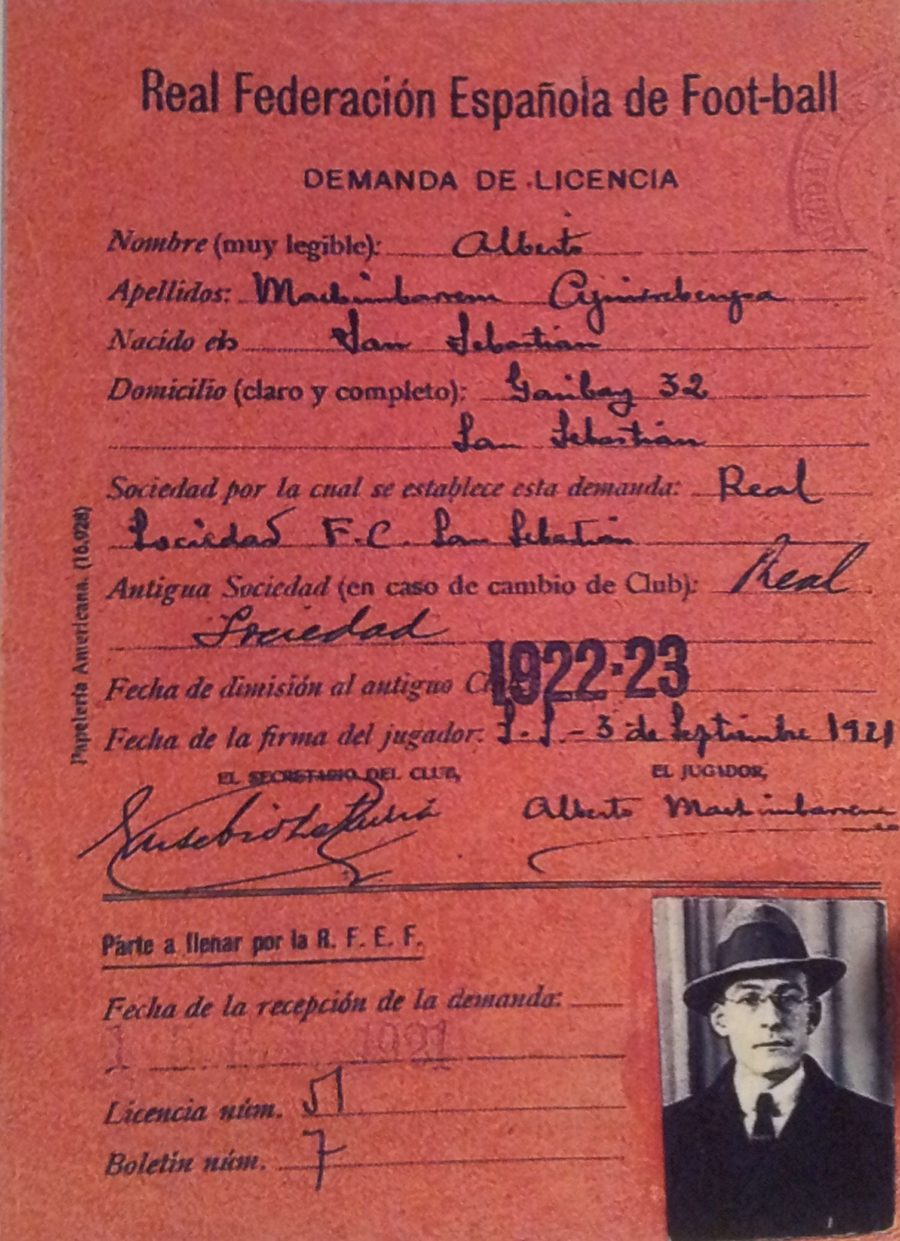 Real Federación Española de Foot-ball
DEMANDA DE LICENCIA
Nombre (muy legible): Alberto
Apellidos: Machimbarrena Aguirrebengoa
Nacido en San Sebastián
Domicilio (claro y completo): Garibay 32
San Sebastián
Sociedad por la cual se establece esta demanda: Real
Sociedad F.C. San Sebastián
Antigua Sociedad (en caso de cambio de Club): Real
Sociedad
Fecha de dimisión al antiguo 1922-23
Fecha de la firma del jugador: S.S.-3 de Septiembre 1921
EL SECRETARIO DEL CLUB, EL JUGADOR,
Eusebio Alberto Machimbarrena
Parte a llenar por la R. F. E. F.
Fecha de la recepción de la demanda:
1921
Licencia núm. 51
Boletín núm. 7
Papelería Americana. (16.928)